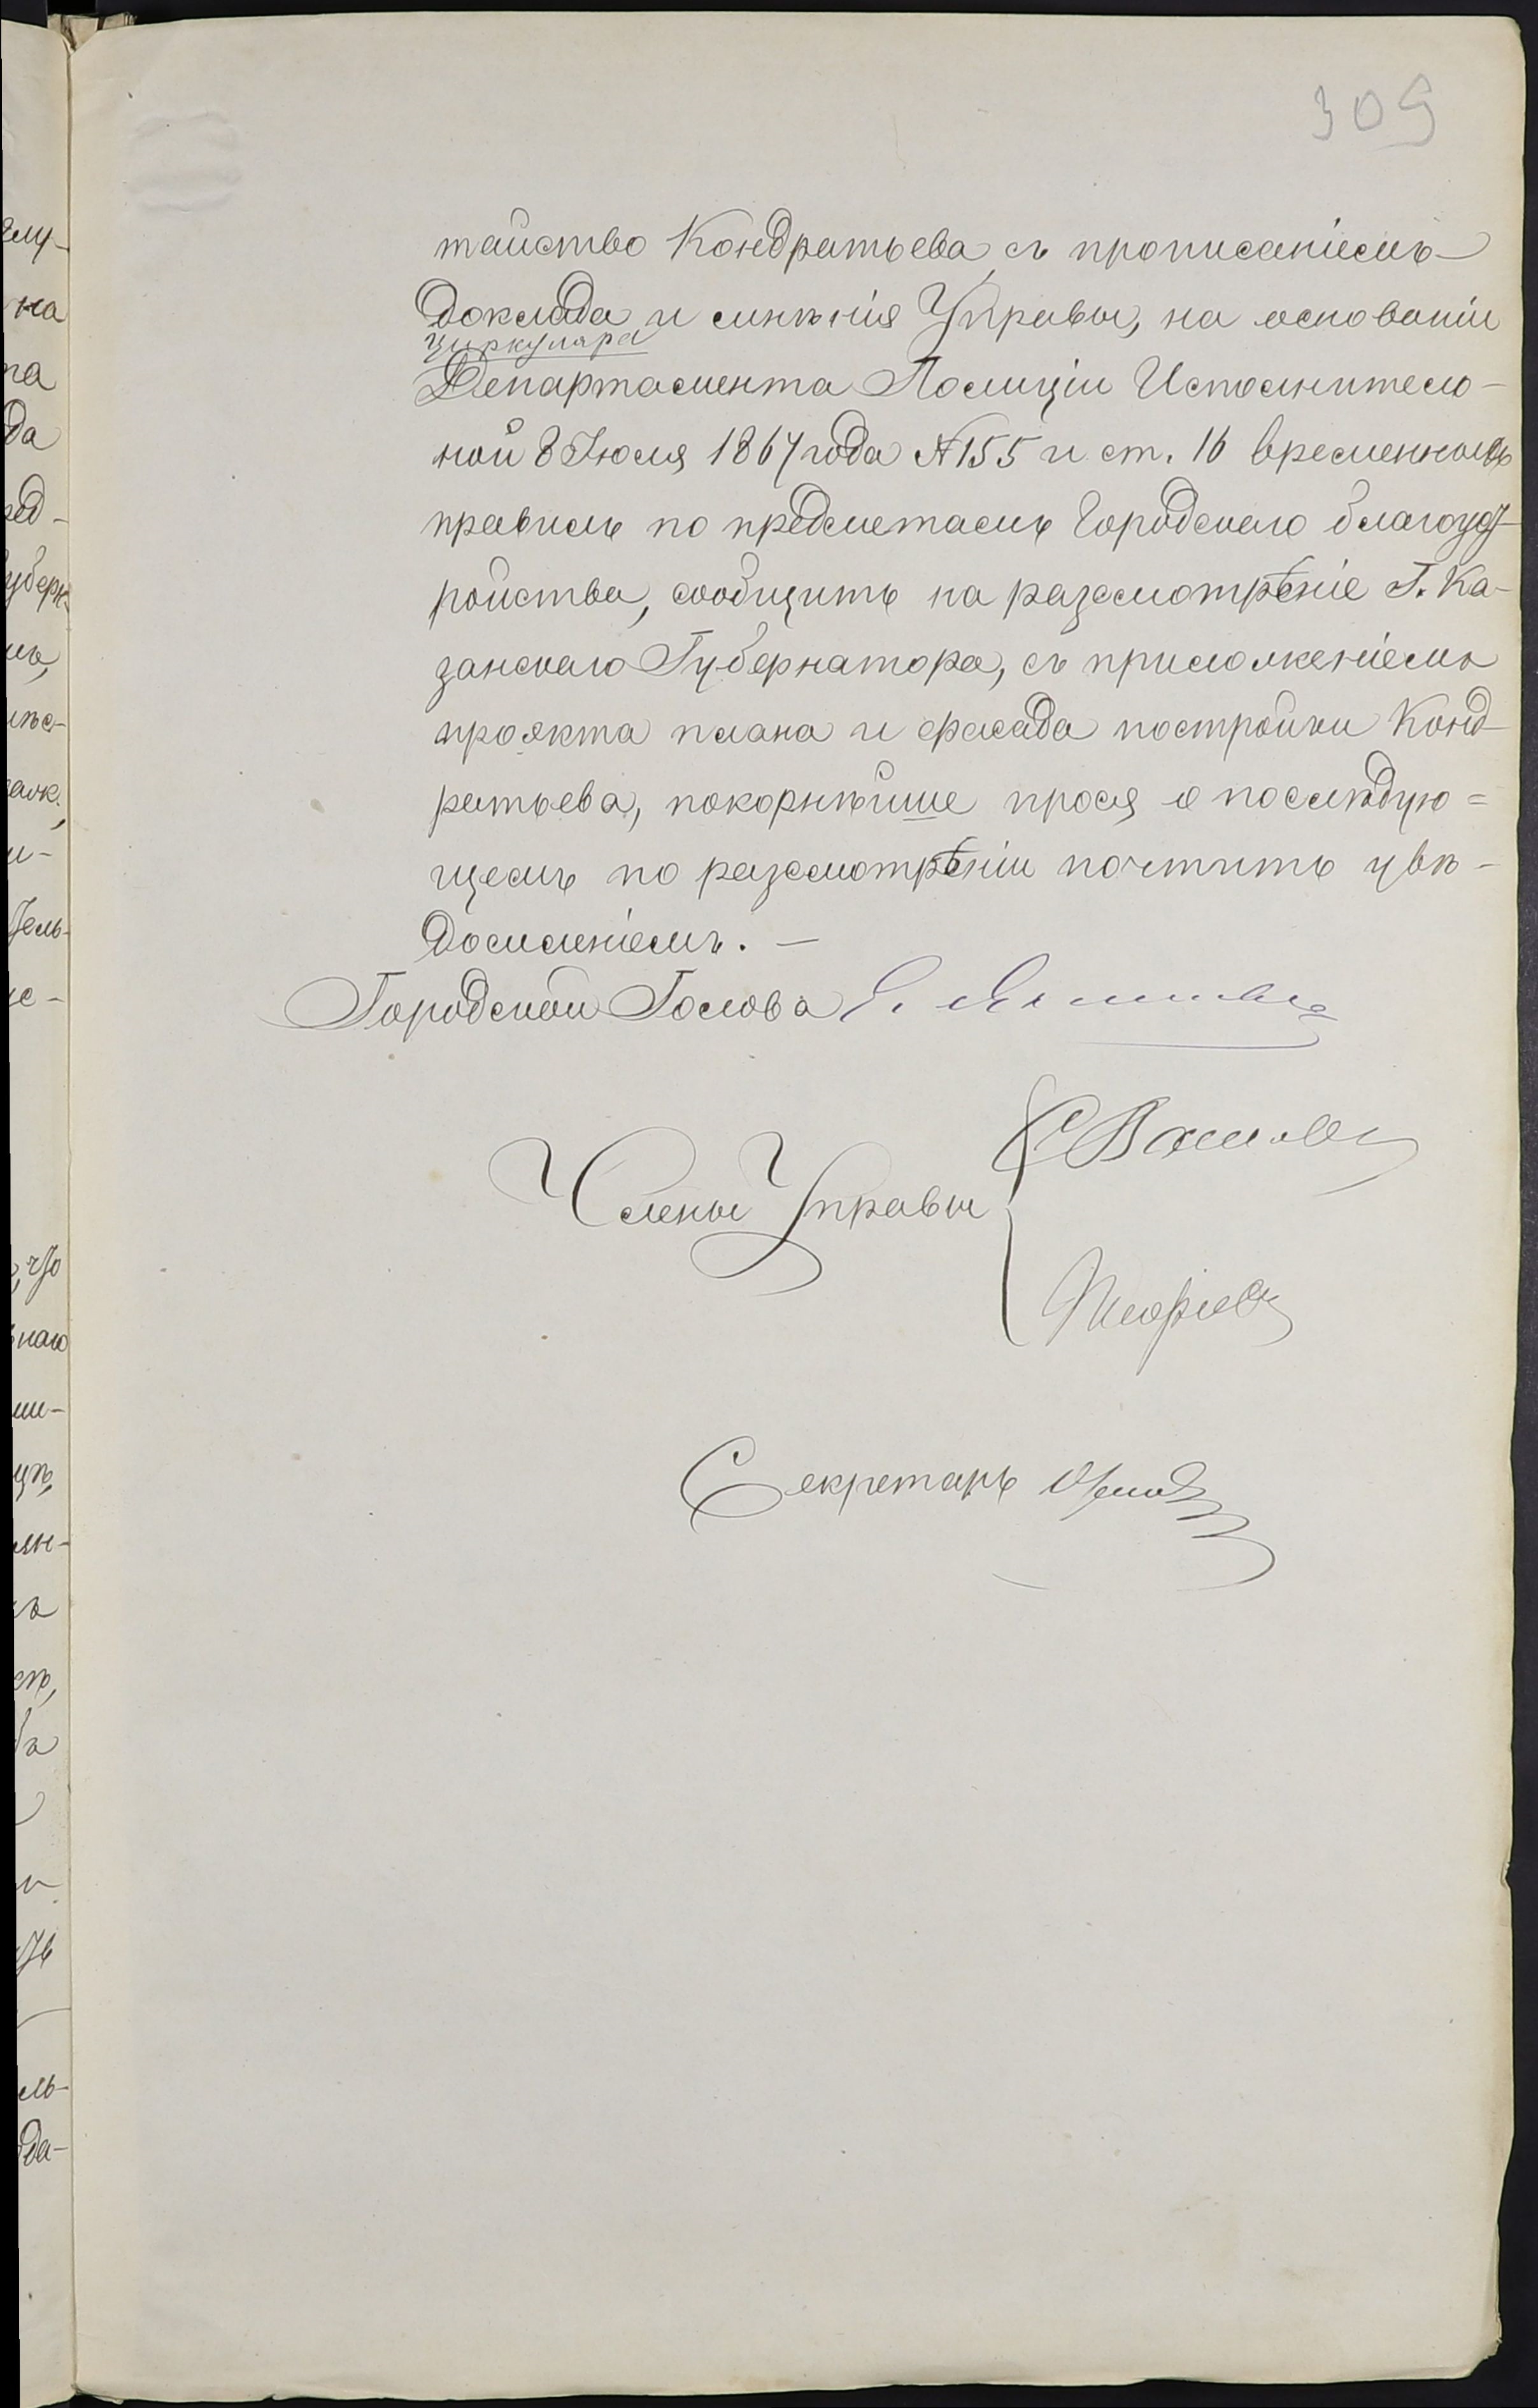 309
тайство Кондратьева, съ прописаніемъ
доклада и мнѣнія Управы, на основаніи
циркуляра
Департамента Полиціи Исполнитель-
ной 8 Іюля 1867 года №155 и ст. 16 временныхъ
правилъ по предметамъ Городскаго благоуст-
ройства, сообщить на разсмотрѣніе Г. Ка-
занскаго Губернатора, съ приложеніемъ
проэкта плана и фасада постройки Конд-
ратьева, покорнѣйше прося о послѣдую=
щемъ по разсмотрѣніи почтить увѣ-
домленіемъ. —
Городской Голова
Члены Управы
Секретарь